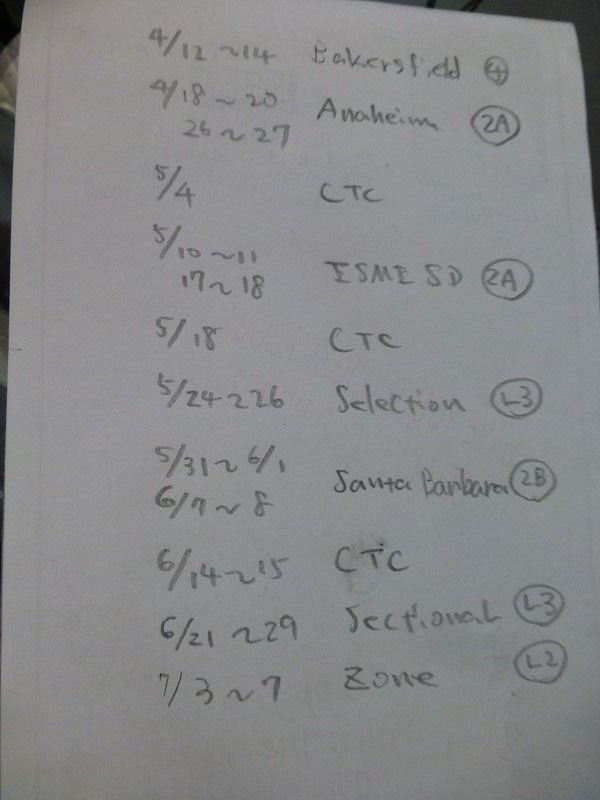 4/12 ~14 Bakersfield 4
4/18 ~ 20 Anaheim 2A
26 ~ 27
5/4 CTC
5/10 ~ 11
17 ~ 18 ISME SD 2A
5/18 CTC
5/24 ~ 26 Selection L3
5/31 ~ 6/1 Santa Barbara 2B
6/7 ~ 8
6/14 ~ 15 CTC
6/21 ~ 29 Sectional L3
7/3 ~ 7 Zone L2